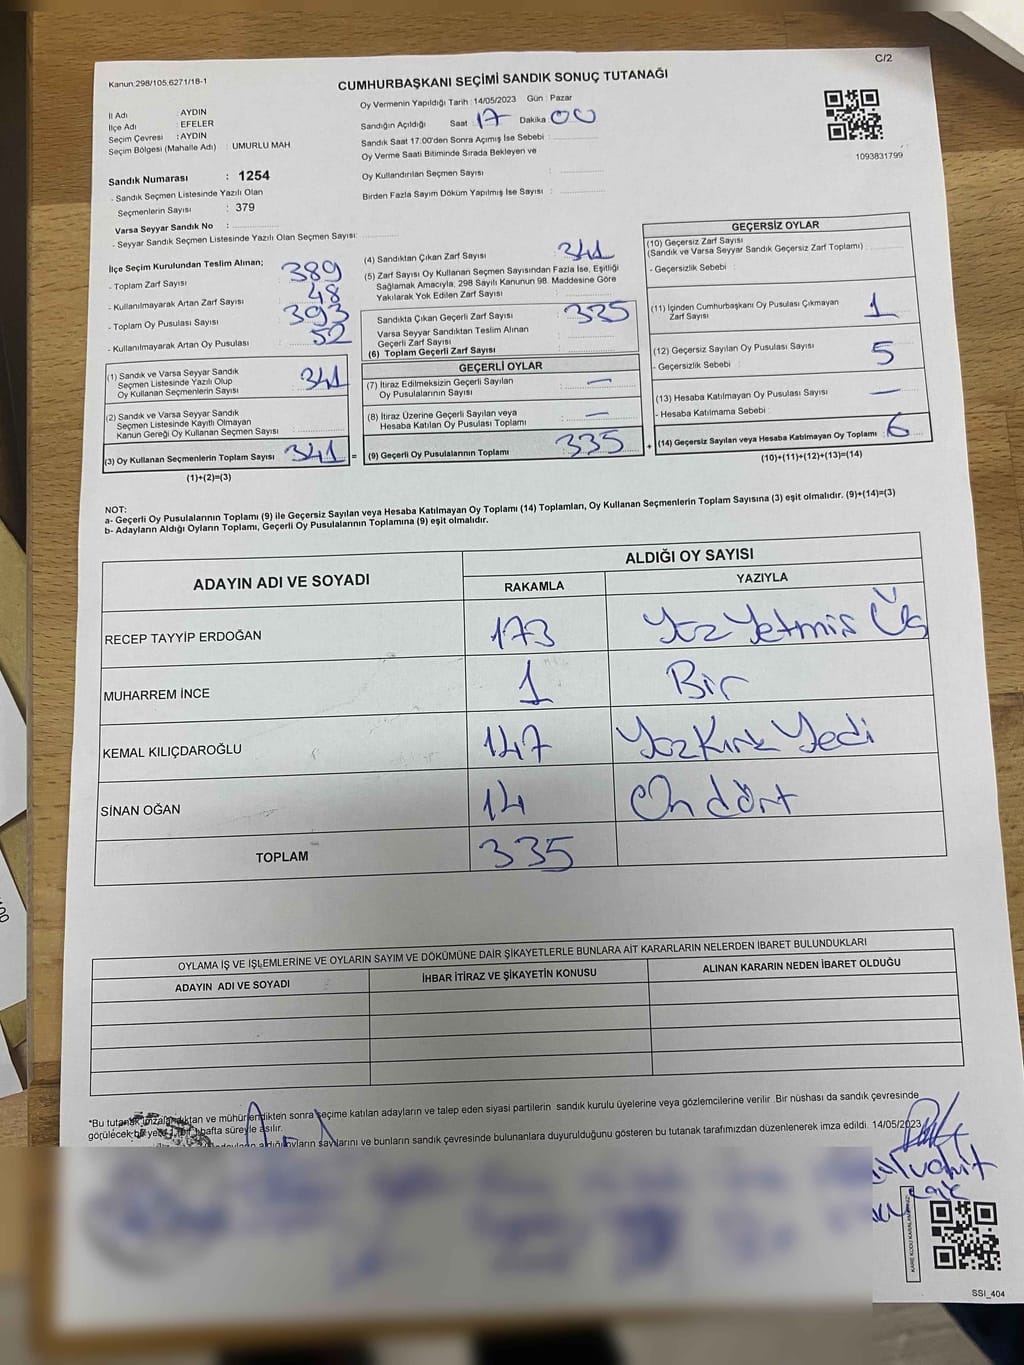 C/2
Kanun 298/105,6271/18-1
CUMHURBAŞKANI SEÇİMİ SANDIK SONUÇ TUTANAĞI
İl Adı : AYDIN
İlçe Adı : EFELER
Seçim Çevresi : AYDIN
Seçim Bölgesi (Mahalle Adı) : UMURLU MAH
Oy Vermenin Yapıldığı Tarih : 14/05/2023 Gün : Pazar
Sandığın Açıldığı Saat : 17 Dakika 00
Sandık Saat 17:00'den Sonra Açımış İse Sebebi :
Oy Verme Saati Bitiminde Sırada Bekleyen ve
Oy Kullandırılan Seçmen Sayısı :
Birden Fazla Sayım Döküm Yapılmış İse Sayısı :
1093831799
Sandık Numarası : 1254
- Sandık Seçmen Listesinde Yazılı Olan
Seçmenlerin Sayısı : 379
Varsa Seyyar Sandık No :
- Seyyar Sandık Seçmen Listesinde Yazılı Olan Seçmen Sayısı:
İlçe Seçim Kurulundan Teslim Alınan;
- Toplam Zarf Sayısı : 389
- Kullanılmayarak Artan Zarf Sayısı : 48
- Toplam Oy Pusulası Sayısı : 393
- Kullanılmayarak Artan Oy Pusulası : 52
(1) Sandık ve Varsa Seyyar Sandık
Seçmen Listesinde Yazılı Olup
Oy Kullanan Seçmenlerin Sayısı : 341
(2) Sandık ve Varsa Seyyar Sandık
Seçmen Listesinde Kayıtlı Olmayan
Kanun Gereği Oy Kullanan Seçmen Sayısı :
(3) Oy Kullanan Seçmenlerin Toplam Sayısı : 341 =
(1)+(2)=(3)
(4) Sandıktan Çıkan Zarf Sayısı : 341
(5) Zarf Sayısı Oy Kullanan Seçmen Sayısından Fazla İse, Eşitliği
Sağlamak Amacıyla, 298 Sayılı Kanunun 98. Maddesine Göre
Yakılarak Yok Edilen Zarf Sayısı :
Sandıkta Çıkan Geçerli Zarf Sayısı : 335
Varsa Seyyar Sandıktan Teslim Alınan
Geçerli Zarf Sayısı :
(6) Toplam Geçerli Zarf Sayısı :
GEÇERLİ OYLAR
(7) İtiraz Edilmeksizin Geçerli Sayılan
Oy Pusulalarının Sayısı : —
(8) İtiraz Üzerine Geçerli Sayılan veya
Hesaba Katılan Oy Pusulası Toplamı : —
(9) Geçerli Oy Pusulalarının Toplamı : 335 +
GEÇERSİZ OYLAR
(10) Geçersiz Zarf Sayısı
(Sandık ve Varsa Seyyar Sandık Geçersiz Zarf Toplamı) :
- Geçersizlik Sebebi :
(11) İçinden Cumhurbaşkanı Oy Pusulası Çıkmayan
Zarf Sayısı : 1
(12) Geçersiz Sayılan Oy Pusulası Sayısı : 5
- Geçersizlik Sebebi :
(13) Hesaba Katılmayan Oy Pusulası Sayısı : —
- Hesaba Katılmama Sebebi :
(14) Geçersiz Sayılan veya Hesaba Katılmayan Oy Toplamı : 6
(10)+(11)+(12)+(13)=(14)
NOT:
a- Geçerli Oy Pusulalarının Toplamı (9) ile Geçersiz Sayılan veya Hesaba Katılmayan Oy Toplamı (14) Toplamları, Oy Kullanan Seçmenlerin Toplam Sayısına (3) eşit olmalıdır. (9)+(14)=(3)
b- Adayların Aldığı Oyların Toplamı, Geçerli Oy Pusulalarının Toplamına (9) eşit olmalıdır.
ADAYIN ADI VE SOYADI
ALDIĞI OY SAYISI
RAKAMLA YAZIYLA
RECEP TAYYİP ERDOĞAN 173 Yüz Yetmiş Üç
MUHARREM İNCE 1 Bir
KEMAL KILIÇDAROĞLU 147 Yüz Kırk Yedi
SİNAN OĞAN 14 On dört
TOPLAM 335
OYLAMA İŞ VE İŞLEMLERİNE VE OYLARIN SAYIM VE DÖKÜMÜNE DAİR ŞİKAYETLERLE BUNLARA AİT KARARLARIN NELERDEN İBARET BULUNDUKLARI
ADAYIN ADI VE SOYADI İHBAR İTİRAZ VE ŞİKAYETİN KONUSU ALINAN KARARIN NEDEN İBARET OLDUĞU
*Bu tutanak imzalandıktan ve mühürlendikten sonra seçime katılan adayların ve talep eden siyasi partilerin sandık kurulu üyelerine veya gözlemcilerine verilir .Bir nüshası da sandık çevresinde
görülecek bir yere hafta süreyle asılır.
aldığı oyların sayılarını ve bunların sandık çevresinde bulunanlara duyurulduğunu gösteren bu tutanak tarafımızdan düzenlenerek imza edildi. 14/05/2023
SSI_404